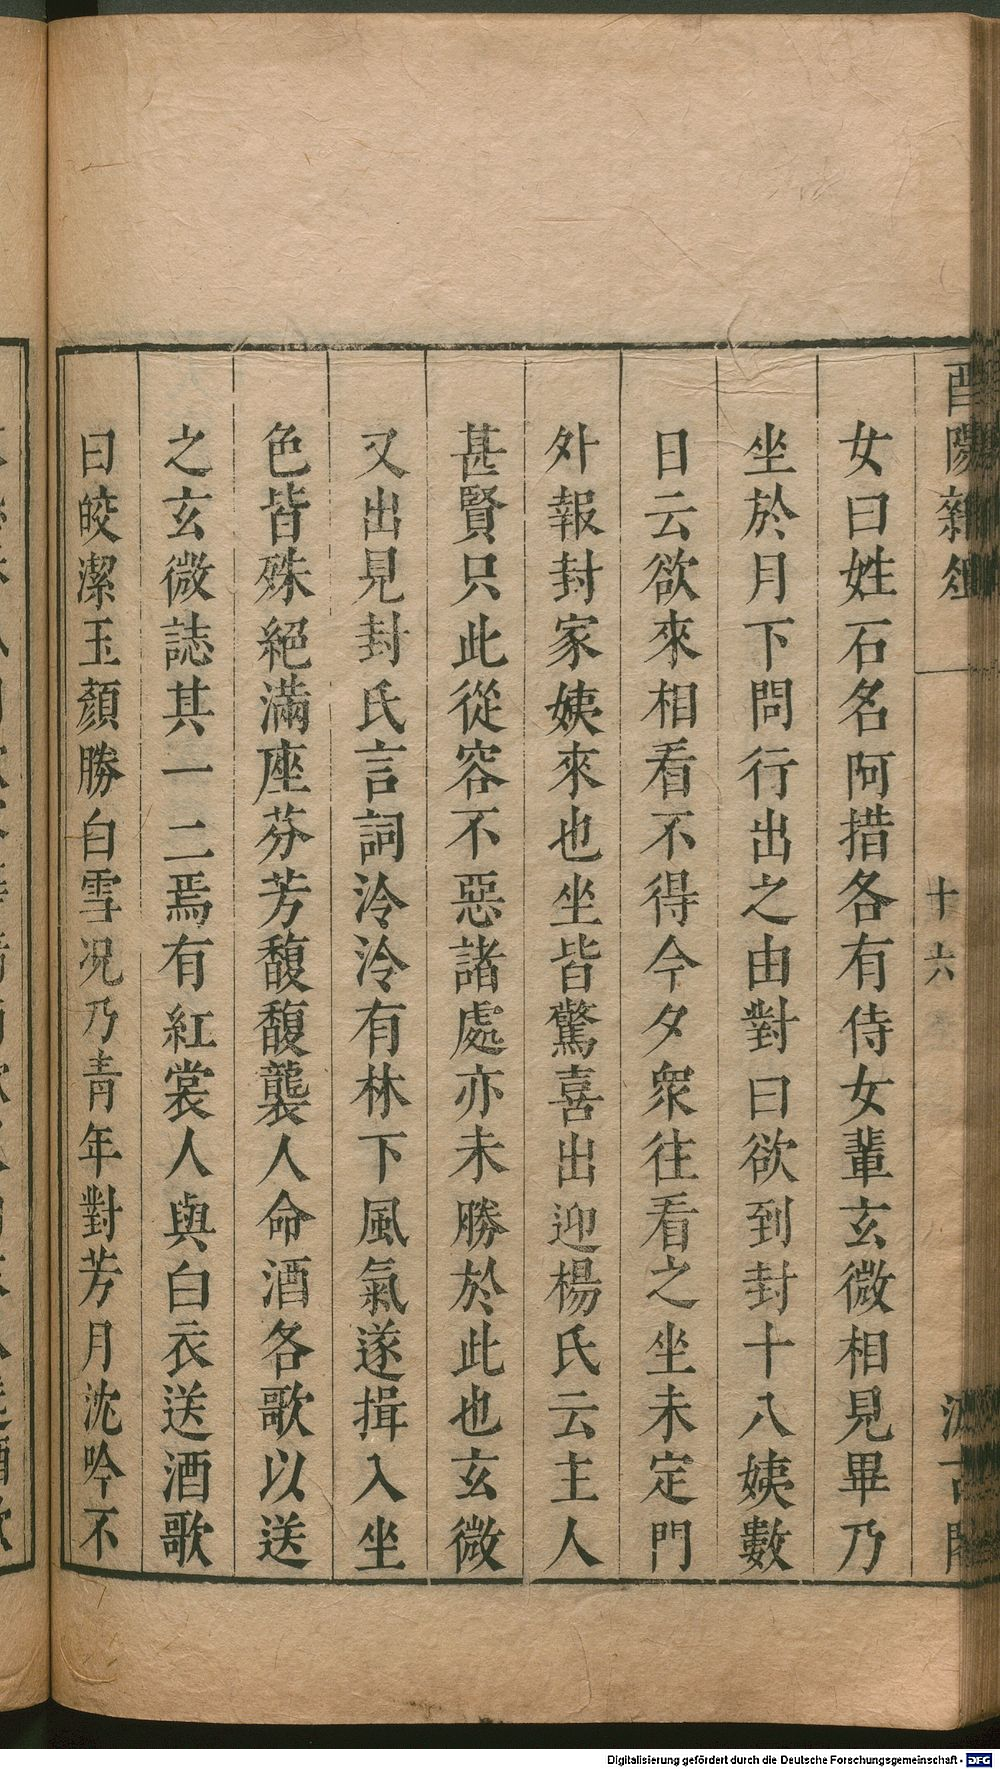 酉陽雜俎
十六
汲古閣
女曰姓石名阿措各有侍女輩玄微相見畢乃
坐於月下問行出之由對曰欲到封十八姨數
日云欲來相看不得今夕衆往看之坐未定門
外報封家姨來也坐皆驚喜出迎楊氏云主人
甚賢只此從容不惡諸處亦未勝於此也玄微
又出見封氏言詞泠泠有林下風氣遂揖入坐
色皆殊絕滿座芬芳馥馥襲人命酒各歌以送
之玄微誌其一二焉有紅裳人與白衣送酒歌
曰皎潔玉顏勝白雪况乃青年對芳月沈吟不
Digitalisierung gefördert durch die Deutsche Forschungsgemeinschaft - DFG